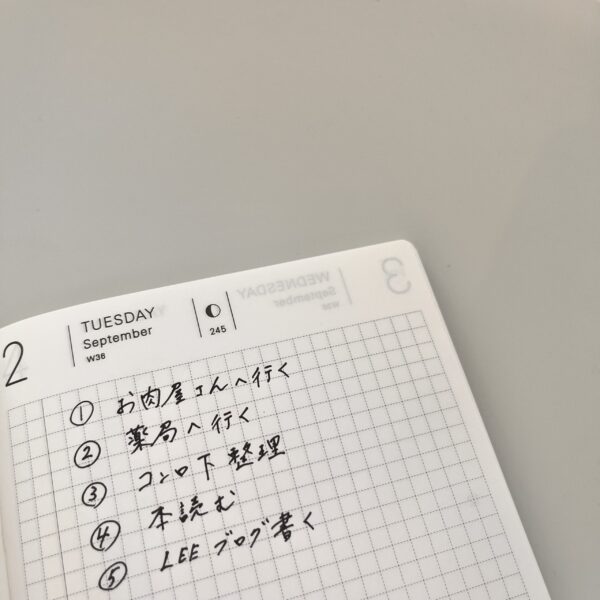 2
TUESDAY
September
W36
245
WEDNESDAY
September
W36
3
① お肉屋さんへ行く
② 薬局へ行く
③ コンロ下整理
④ 本読む
⑤ LEEブログ書く